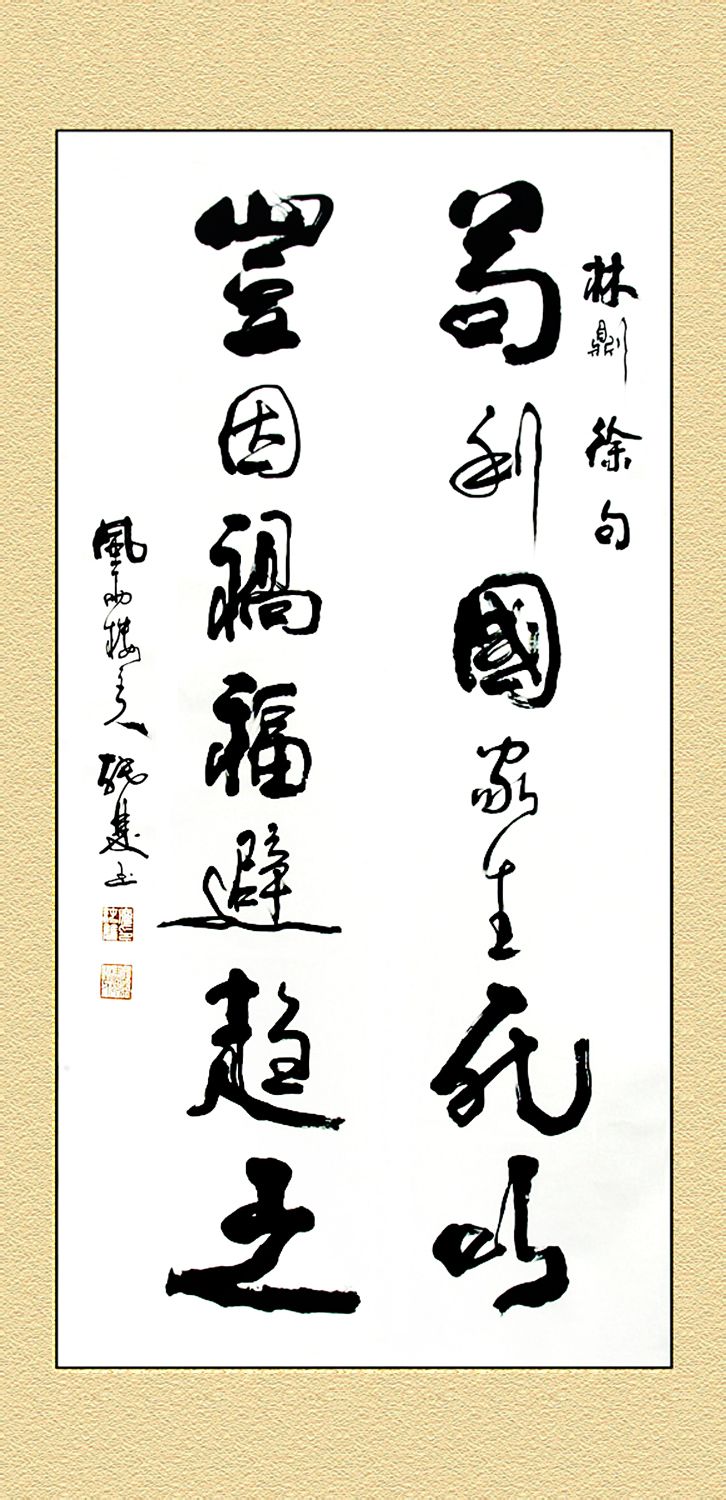 林則徐句
苟利國家生死以
豈因禍福避趨之
風雨樓主人